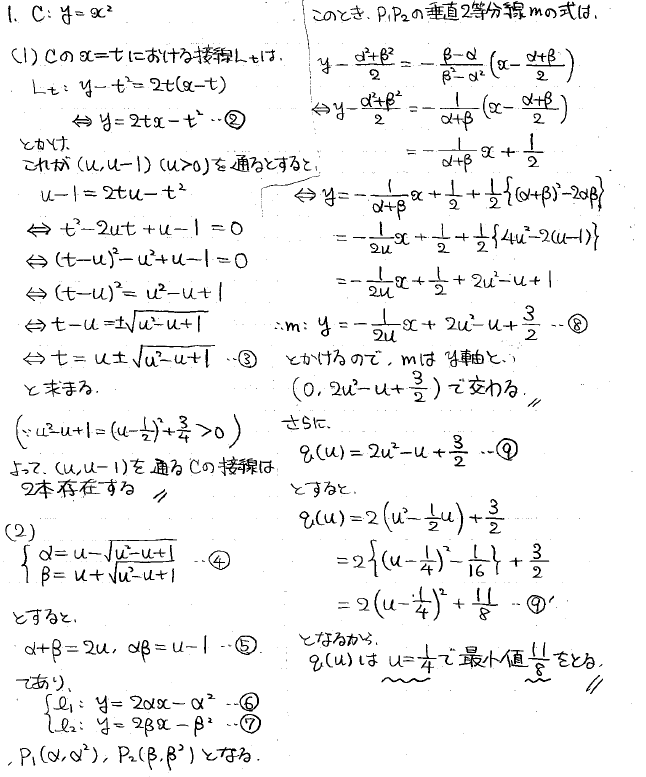 1. C: y = x²
(1) Cのx=tにおける接線Ltは、
Lt: y-t²=2t(x-t)
⇔ y=2tx-t² …②
とかけ、
これが(u,u-1)(u>0)を通るとすると、
u-1=2tu-t²
⇔ t²-2ut+u-1=0
⇔ (t-u)²-u²+u-1=0
⇔ (t-u)²=u²-u+1
⇔ t-u=±√(u²-u+1)
⇔ t=u±√(u²-u+1) …③
と求まる。
(∵u²-u+1=(u-1/2)²+3/4>0)
よって、(u,u-1)を通るCの接線は
2本存在する 〃
(2)
{ α=u-√(u²-u+1)
{ β=u+√(u²-u+1) …④
とすると、
α+β=2u, αβ=u-1 …⑤
であり、
{ l₁: y=2αx-α² …⑥
{ l₂: y=2βx-β² …⑦
, P₁(α,α²), P₂(β,β²)となる.
このとき、P₁P₂の垂直2等分線mの式は、
y-(α²+β²)/2=-(β-α)/(β²-α²)(x-(α+β)/2)
⇔ y-(α²+β²)/2=-1/(α+β)(x-(α+β)/2)
=-1/(α+β)x+1/2
⇔ y=-1/(α+β)x+1/2+1/2{(α+β)²-2αβ}
=-1/(2u)x+1/2+1/2{4u²-2(u-1)}
=-1/(2u)x+1/2+2u²-u+1
∴m: y=-1/(2u)x+2u²-u+3/2 …⑧
とかけるので、mはy軸と、
(0, 2u²-u+3/2)で交わる。〃
さらに、
q(u)=2u²-u+3/2 …⑨
とすると、
q(u)=2(u²-1/2u)+3/2
=2{(u-1/4)²-1/16}+3/2
=2(u-1/4)²+11/8 …⑨'
となるから、
q(u)はu=1/4で最小値11/8をとる。〃